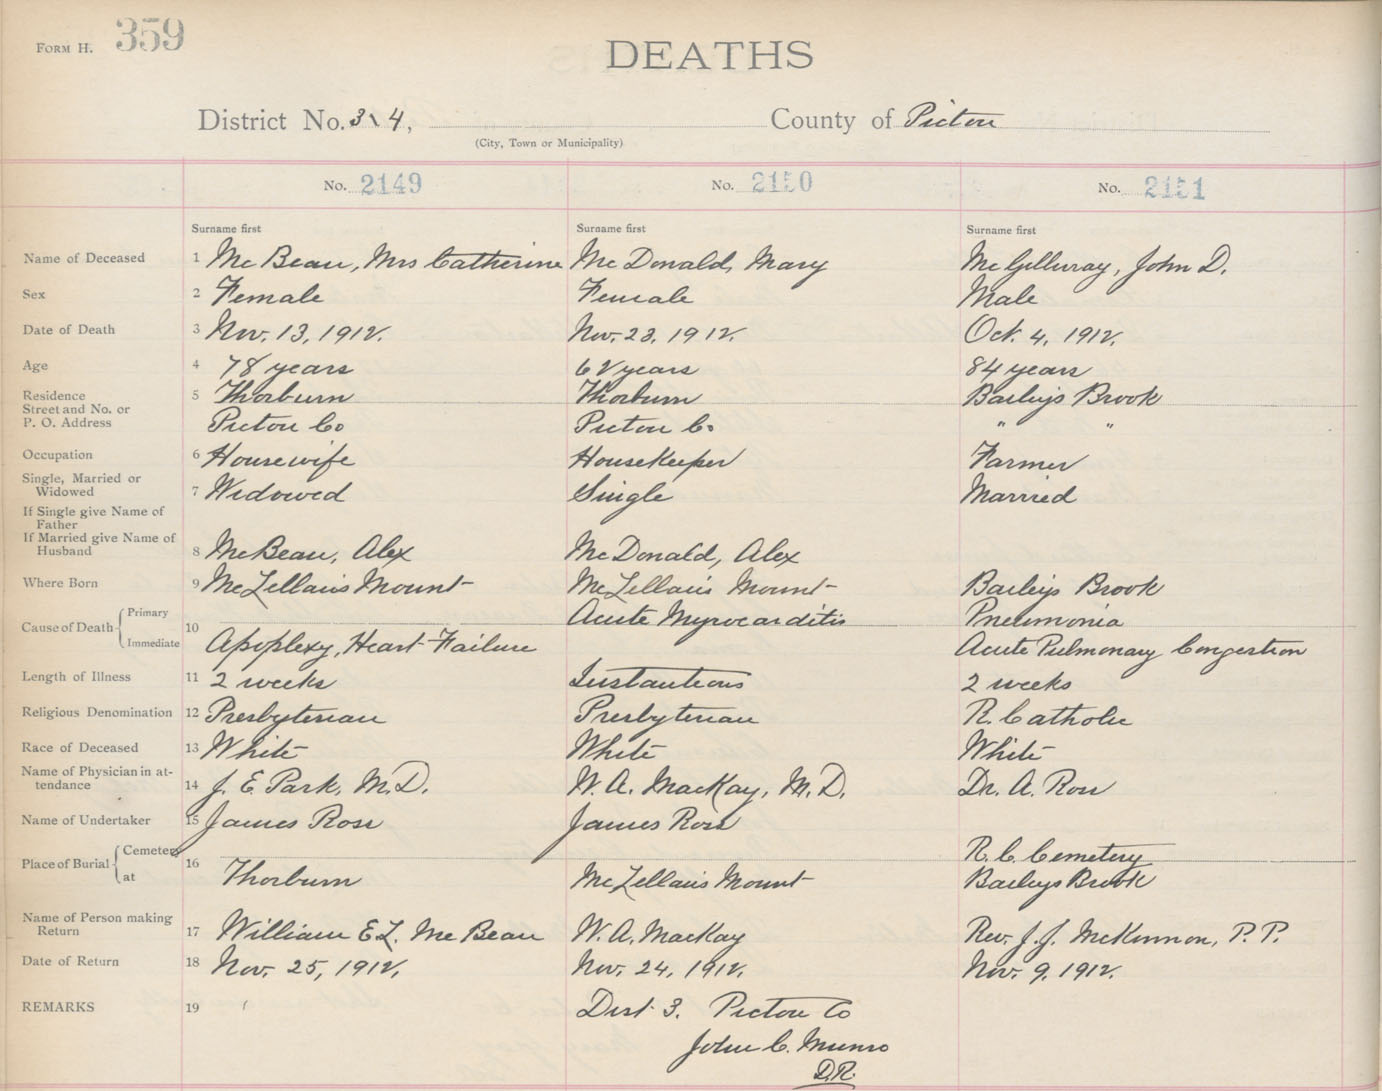 FORM H. 359
DEATHS
District No. 3 \ 4, County of Pictou
(City, Town or Municipality)
No. 2149 No. 2150 No. 2151
Surname first Surname first Surname first
Name of Deceased 1 Mc Bean, Mrs Catherine Mc Donald, Mary Mc Gillivray, John D.
Sex 2 Female Female Male
Date of Death 3 Nov. 13, 1912. Nov. 23, 1912. Oct. 4, 1912.
Age 4 78 years 62 years 84 years
Residence 5 Thorburn Thorburn Baileys Brook
Street and No. or
P. O. Address Pictou Co Pictou Co " "
Occupation 6 Housewife Housekeeper Farmer
Single, Married or
Widowed 7 Widowed Single Married
If Single give Name of
Father
If Married give Name of
Husband 8 McBean, Alex McDonald, Alex
Where Born 9 McLellan's Mount McLellan's Mount Baileys Brook
Cause of Death Primary 10 Acute Myrocarditis Pneumonia
Immediate Apoplexy, Heart Failure Acute Pulmonary Congestion
Length of Illness 11 2 weeks Instantious 2 weeks
Religious Denomination 12 Presbyterian Presbyterian R. Catholic
Race of Deceased 13 White White White
Name of Physician in at-
tendance 14 J. E. Park, M.D. W. A. MacKay, M.D. Dr. A. Ross
Name of Undertaker 15 James Ross James Ross
Place of Burial Cemetery 16 R. C. Cemetery
at Thorburn McLellan's Mount Baileys Brook
Name of Person making
Return 17 William E.L. McBean W. A. MacKay Rev. J. J. McKinnon, P.P.
Date of Return 18 Nov. 25, 1912. Nov. 24, 1912. Nov. 9. 1912.
REMARKS 19 Dist 3. Pictou Co
John C. Munro
D.R.